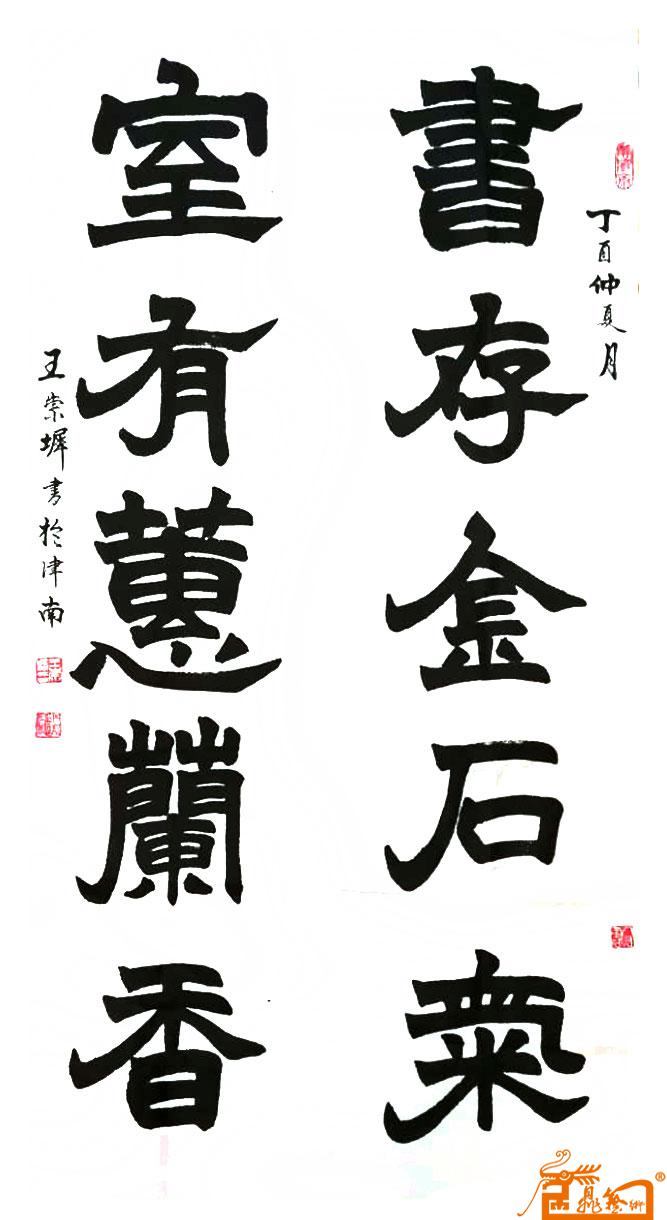 丁酉仲夏月
書存金石氣
室有蕙蘭香
王崇墀書於津南